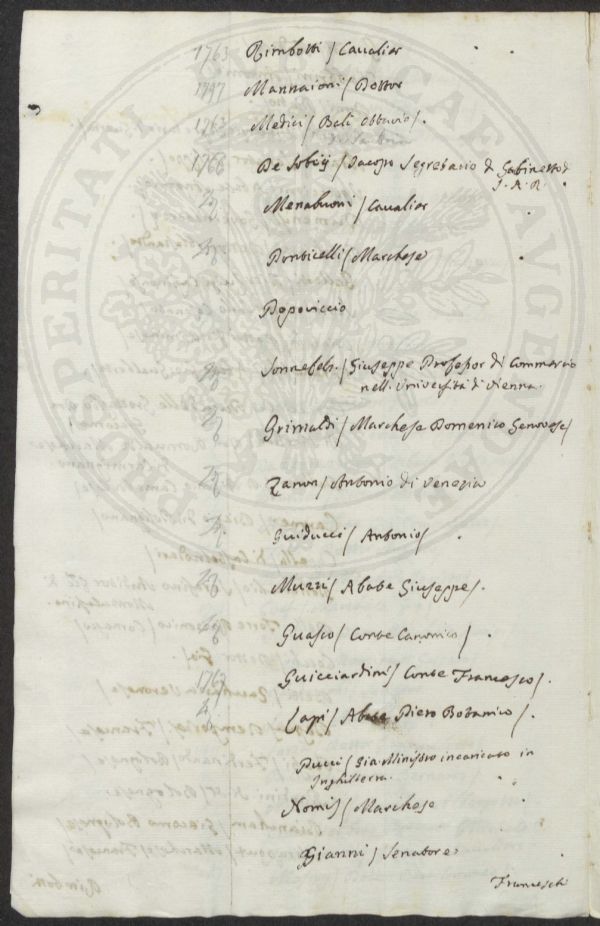 1763 Rimbotti / Cavalier
1747 Mannaioni / Dottor
1763 Medici / Balì Ottavio /.
1766 De Sobiy: / Jacopo Segretario di Gabinetto di
S. A. R.
Menabuoni / Cavalier
Ponticelli / Marchese
Popoviccio
Sonnefels. / Giuseppe Professor di Commercio
nell. Università di Vienna.
Grimaldi / Marchese Domenico Genovese /
Zanon / Antonio di Venezia
Guiducci / Antonio /
Muzzi / Abate Giuseppe /.
Guasco / Conte Canonico / .
1767 Guicciardini / Conte Francesco / .
Lapi / Abate Piero Botanico / .
Pucci / Già Ministro incaricato in
Inghilterra.
Nomi / / Marchese
Gianni / Senatore
Franceschi